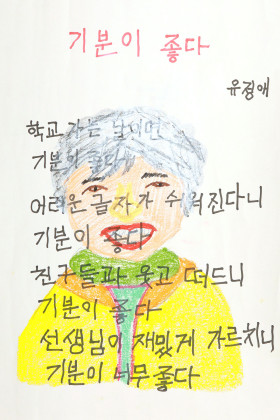 기분이 좋다
유정애
학교 가는 날이면
기분이 좋다
어려운 글자가 쉬워진다니
기분이 좋다
친구들과 웃고 떠드니
기분이 좋다
선생님이 재밌게 가르치니
기분이 너무 좋다